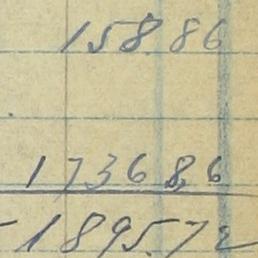 158.86
1736 86
1895.72